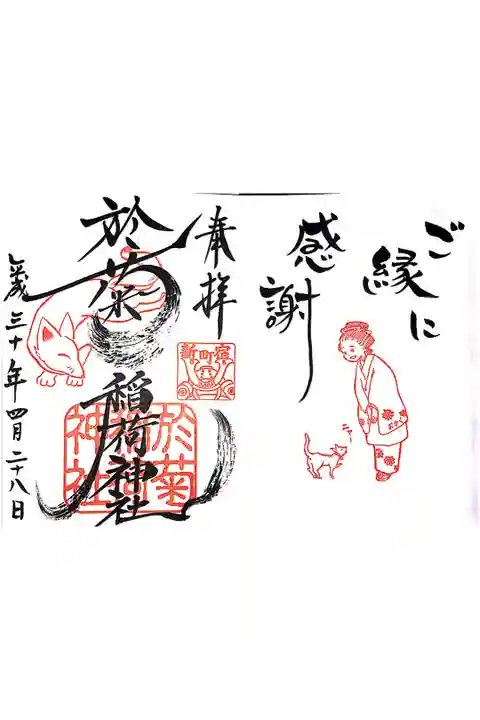 ご縁に
感謝
奉拝
新町宿
於菊稲荷神社
於菊
稲荷
神社
平成三十年四月二十八日